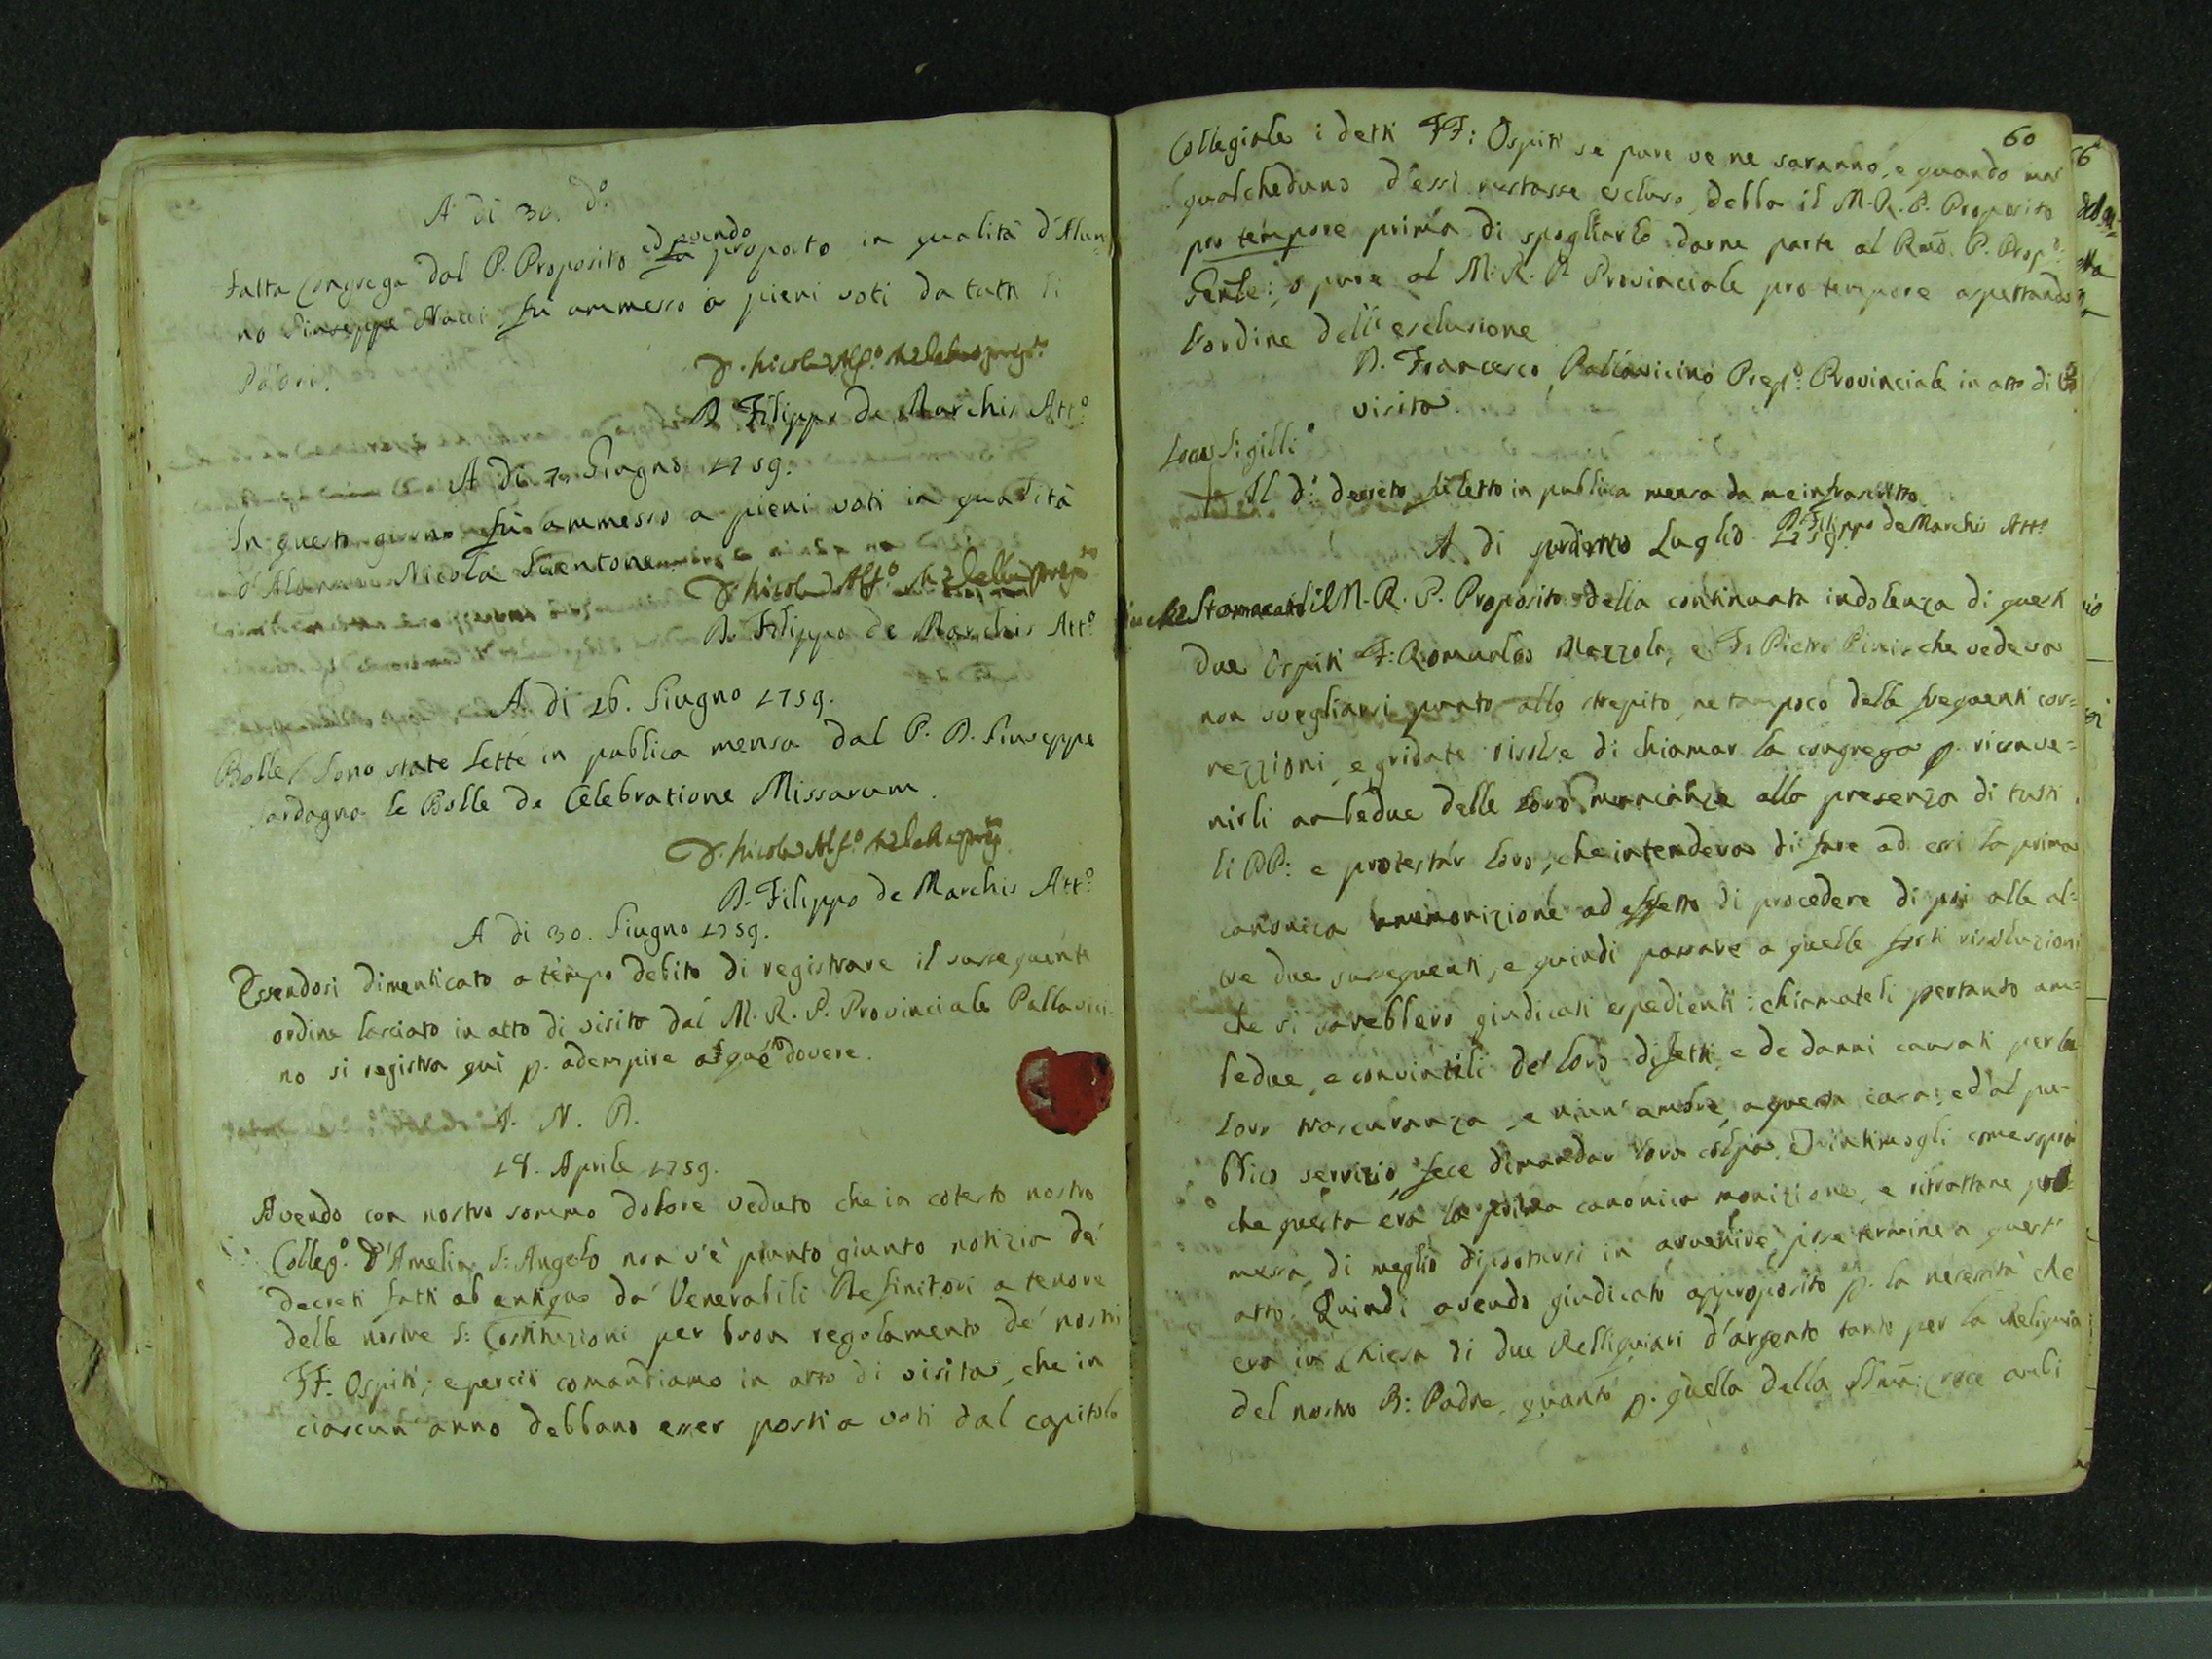 A di 30. dº
Fatta Congrega dal P. Proposito ed essendo proposto in qualità d'Alun=
no Giuseppe Nacci fù ammesso a pieni voti da tutti li
Padri.
D. Nicola Alfº
D. Filippo de Marchis Attº
A di 7. Giugno 1759.
In questo giorno fù ammesso a pieni voti in qualità
d'Alunno Nicola
D. Nicola Alfº
D. Filippo de Marchis Attº
A di 16. Giugno 1759.
Bolle Sono state lette in publica mensa dal P. D. Giuseppe
Sardagna le Bolle de Celebratione Missarum.
D. Nicola Alfº
D. Filippo de Marchis Attº
A di 30. Giugno 1759.
Essendosi dimenticato a tempo debito di registrare il susseguente
ordine lasciato in atto di visita dal M. R. P. Provinciale Pallavici
no si registra qui p. adempire a questo dovere.
I. N. D.
18. Aprile 1759.
Avendo con nostro sommo dolore veduto che in cotesto nostro
Collegº d'Amelia S: Angelo non v'è punto giunto notizia de'
decreti fatti ab antiquo da' Venerabili Definitori a tenore
delle nostre S: Costituzioni per buon regolamento de' nostri
FF. Ospiti; e perciò comandiamo in atto di visita, che in
ciascun anno debbano esser posti a voti dal capitolo
60
Collegiale i detti FF: Ospiti se pure ve ne saranno, e quando mai
qualcheduno d'essi restasse escluso, debba il M. R. P. Proposito
pro tempore prima di spogliarlo darne parte al Rmo. P. Propº
Genle: o pure al M. R. P. Provinciale pro tempore aspettando
l'ordine dell' esclusione
D. Francesco Pallavicino Prepº Provinciale in atto di
visita.
Locus Sigilli
Il dº decreto fu letto in publica mensa da me infrascritto
D. Filippo de Marchis Attº
A di Luglio 1759
Stomacatosi il M. R. P. Proposito della continuata indolenza di questi
due Ospiti F: Romualdo Mazzola, e F. Pietro Pini, che vedeva
non svegliarsi punto allo strepito, ne tampoco delle frequenti cor=
rezzioni, e gridate risolse di chiamar la congrega p. riconve=
nirli ambedue delle loro mancanze alla presenza di tutti
li PP: e protestar loro, che intendeva di fare ad essi la prima
canonica ammonizione ad effetto di procedere di poi alle al=
tre due susseguenti, e quindi passare a quelle forti risoluzioni
che si sarebbero giudicati espedienti: chiamateli pertanto am=
bedue, e convintili de' loro difetti, e de danni causati per la
loro trascuranza, e niun' amore, a questa casa; ed al pu=
blico servizio, fece dimandar loro colpa, ed intimogli come sopra
che questa era la prima canonica monizione, e ritrattane pro=
messa di meglio diportarsi in avvenire, pose termine a quest'
atto. Quindi avendo giudicato approposito p. la necessità che
era in Chiesa di due Relliquiari d'argento tanto per la Reliquia
del nostro B: Padre, quanto p. quella della Ssma: Croce